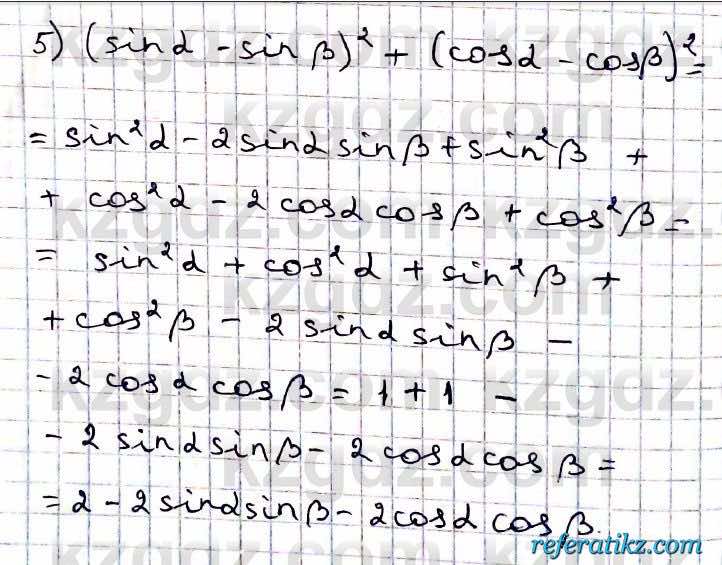 5) (sinα - sinβ)² + (cosα - cosβ)² =
= sin²α - 2sinα sinβ + sin²β +
+ cos²α - 2cosα cosβ + cos²β =
= sin²α + cos²α + sin²β +
+ cos²β - 2sinα sinβ -
- 2cosα cosβ = 1 + 1 -
- 2sinα sinβ - 2cosα cosβ =
= 2 - 2sinα sinβ - 2cosα cosβ.
referatikz.com